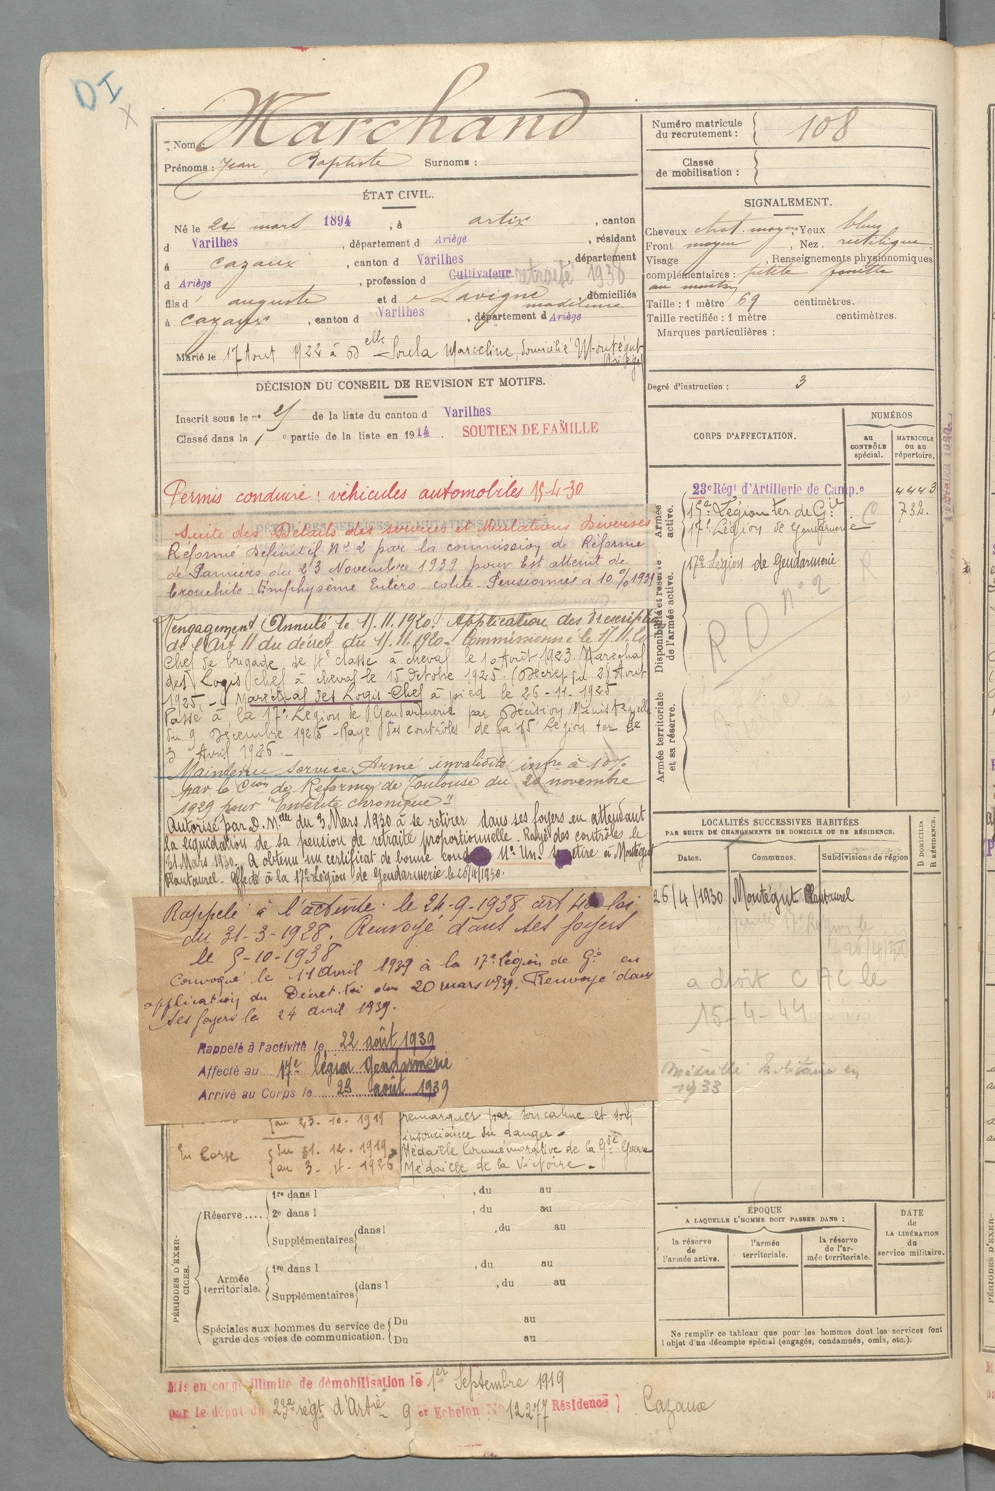 DI
X
Nom Marchand
Prénoms : Jean, Baptiste Surnoms :
Numéro matricule du recrutement : 108
Classe de mobilisation :
ÉTAT CIVIL.
Né le 24 mars 1894, à artix, canton
d Varilhes, département d Ariège, résidant
à cazaux, canton d Varilhes, département
d Ariège, profession d Cultivateur retraité 1930
fils d' auguste et d e Lavigne madeleine domiciliés
à cazaux, canton d Varilhes, département d Ariège
Marié le 17 Aout 1922 à delle Soula Marceline, domicilié Montégut (Ariège)
SIGNALEMENT.
Cheveux chat. moyen Yeux bleus
Front moyen, Nez rectiligne
Visage , Renseignements physionomiques
complémentaires : petite fossette
au menton
Taille : 1 mètre 69 centimètres.
Taille rectifiée : 1 mètre centimètres.
Marques particulières :
DÉCISION DU CONSEIL DE REVISION ET MOTIFS.
Inscrit sous le n° de la liste du canton d Varilhes
Classé dans la 1 e partie de la liste en 1914. SOUTIEN DE FAMILLE
Degré d'instruction : 3
Permis conduire : véhicules automobiles 15-4-30
Suite des Détails des services et Mutations Diverses
Réformé Définitif N° 2 par la commission de Réforme
de Pamiers du 23 Novembre 1939 pour Est atteint de
bronchite - Emphysème Entéro-colite - Pensionnés à 10 %
Rengagement (Annulé le 17.11.1920. Application des
de l'art 11 du décret du 17.11.1920 - Commissionné le 17.11.20
Chef de brigade de 4e classe à cheval le 10 Août 1923. Maréchal
des Logis chef à cheval le 15 Octobre 1925 (Décret du 28 Aout
1925. - Maréchal des Logis-Chef à pied le 26-11-1925
Passé à la 17e Légion de Gendarmerie par Décision Ministérielle
du 9 Décembre 1925 - Rayé des contrôles de la 15 Légion ter Gie
3 Avril 1926. -
Maintenu Service Armé invalidité infre à 10%
par la Con de Réforme de Toulouse du 20 novembre
1929 pour "Entérite chronique"
Autorisé par D. Mlle du 3 Mars 1930 à se retirer dans ses foyers en attendant
la liquidation de sa pension de retraite proportionnelle. Rayé des contrôles le
31 Mars 1930. A obtenu un certificat de bonne Se retire à Montégut
Plantaurel. Affecté à la 17e Légion de Gendarmerie le 26/4/1930.
Rappelé à l'activité le 24-9-1938 art 40 loi
du 31-3-1928. Renvoyé dans ses foyers
le 5-10-1938
Convoqué le 11 Avril 1939 à la 17e Légion de Gie en
application du Décret-loi du 20 mars 1939. Renvoyé dans
ses foyers le 24 avril 1939.
Rappelé à l'activité le 22 août 1939
Affecté au 17e légion Gendarmerie
Arrivé au Corps le 23 août 1939
au 23-10-1919
En Corse
du 31-12-1919
au 3-4-1926
remarquer par son calme et son
insouciance du danger -
Médaille Commémorative de la Gde Guerre
Médaille de la Victoire -
CORPS D'AFFECTATION.
NUMÉROS
au CONTRÔLE spécial.
MATRICULE ou au répertoire.
Armée active.
23e Régt d'Artillerie de Campe 4443
15e Légion ter de Gie 732
17e Légion de Gendarmerie
Disponibilité et réserve de l'armée active.
17e Légion de Gendarmerie
R D n° 2
Armée territoriale et sa réserve.
LOCALITÉS SUCCESSIVES HABITÉES
PAR SUITE DE CHANGEMENTS DE DOMICILE OU DE RÉSIDENCE.
Dates. Communes. Subdivisions de région D DOMICILE R RÉSIDENCE.
26/4/1930 Montégut Plantaurel
a droit C A C le
15-4-44
Médaille Militaire en
1933
PÉRIODES D'EXERCICES.
Réserve....
1re dans l , du au
2e dans l , du au
Supplémentaires dans l , du au
Armée territoriale.
1re dans l , du au
Supplémentaires dans l , du au
Spéciales aux hommes du service de garde des voies de communication.
Du au
Du au
ÉPOQUE
A LAQUELLE L'HOMME DOIT PASSER DANS :
la réserve de l'armée active.
l'armée territoriale.
la réserve de l'armée territoriale.
DATE de LA LIBÉRATION du service militaire.
Ne remplir ce tableau que pour les hommes dont les services font
l'objet d'un décompte spécial (engagés, condamnés, omis, etc.).
Mis en congé illimité de démobilisation le 1er Septembre 1919
par le dépôt du 23e régt d'Artie 9 er Echelon N° 12277 Résidence Cazaux